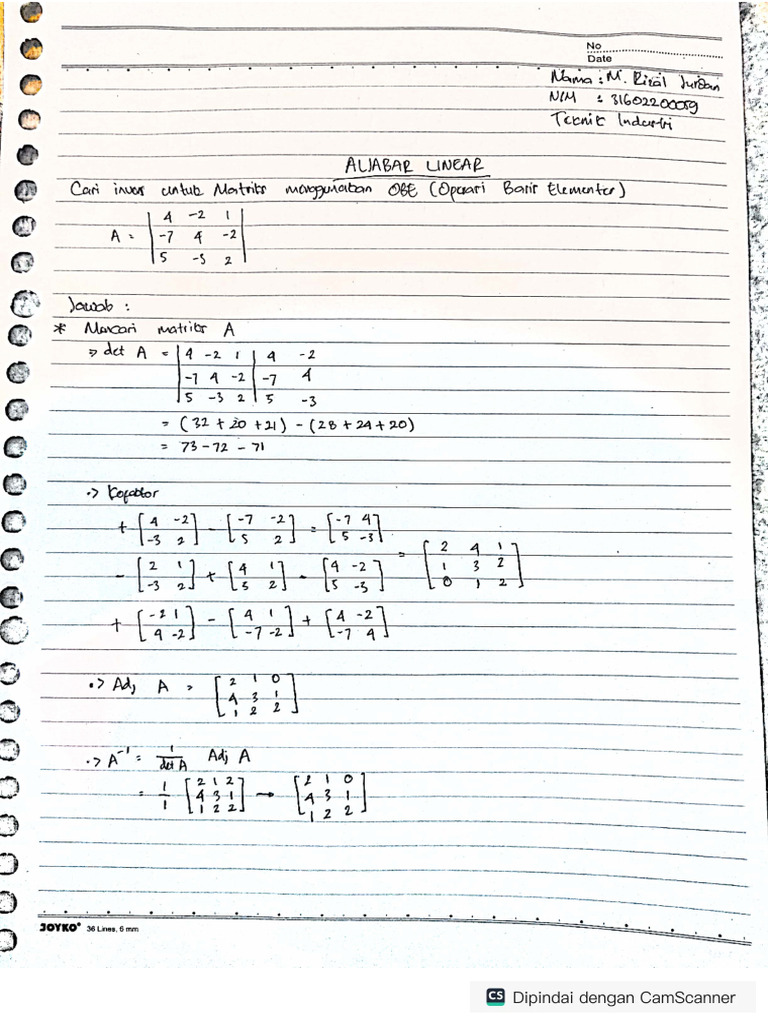 No
Date
Nama : M. Rizal Jurdan
NIM : 31602200059
Teknik Industri
ALJABAR LINEAR
Cari invers untuk Matriks menggunakan OBE (Operasi Baris Elementer)
4 -2 1
A = -7 4 -2
5 -3 2
Jawab :
* Mencari matriks A
⇒ det A = | 4 -2 1 | 4 -2
| -7 4 -2 | -7 4
| 5 -3 2 | 5 -3
= (32 + 20 + 21) - (28 + 24 + 20)
= 73 - 72 - 71
.> Kofaktor
+ [4 -2 - [-7 -2 = [-7 4
-3 2] 5 2] 5 -3]
- [2 1 + [4 1 - [4 -2 = [2 4 1
-3 2] 5 2] 5 -3] 1 3 2
0 1 2]
+ [-2 1 - [4 1 + [4 -2
4 -2] -7 -2] -7 4]
.> Adj A = [2 1 0
4 3 1
1 2 2]
.> A⁻¹ = 1/det A Adj A
= 1/1 [2 1 2 → [2 1 0
4 3 1 4 3 1
1 2 2] 1 2 2]
JOYKO® 36 Lines, 6 mm
CS Dipindai dengan CamScanner